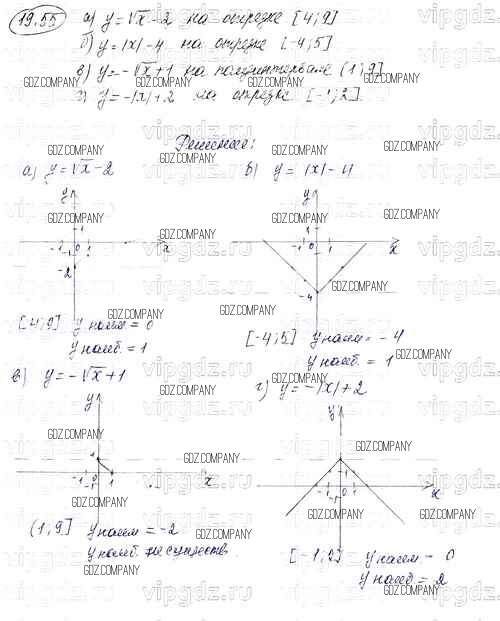 19.55 а) y = √x - 2 на отрезке [4; 9]
б) y = |x| - 4 на отрезке [-4; 5]
в) y = -√x + 1 на полуинтервале (1; 9]
г) y = -|x| + 2 на отрезке [-1; 2].
Решение:
а) y = √x - 2
б) y = |x| - 4
y
1
-1 0 1
-1
-2
x
y
1
-1 0 1
-4
x
[4; 9] y наим = 0
y наиб. = 1
[-4; 5] y наим = -4
y наиб. = 1
в) y = -√x + 1
г) y = -|x| + 2
y
1
-1 1
-1
x
y
-1 0 1
-1
x
(1; 9] y наим = -2
y наиб. не существ.
[-1; 2] y наим - 0
y наиб = 2
GDZ.COMPANY
vipgdz.ru